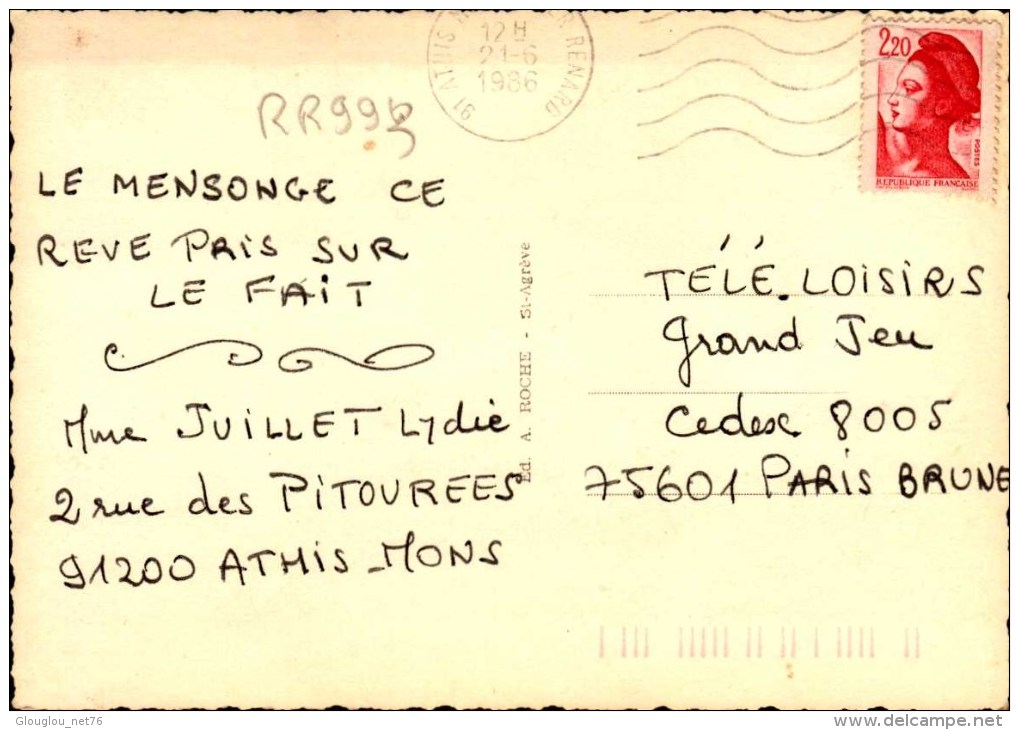 91 ATHIS
RENARD
12 H
21-6
1986
2,20
POSTES
REPUBLIQUE FRANÇAISE
LE MENSONGE CE
REVE PRIS SUR
LE FAIT
Mme JUILLET Lydie
2 rue des PITOUREES
91200 ATHIS-MONS
Ed. A. ROCHE - St-Agrève
TÉLÉ.LOISIRS
Grand Jeu
Cedex 8005
75601 PARIS BRUNE
Glouglou_net76
delcampe.net